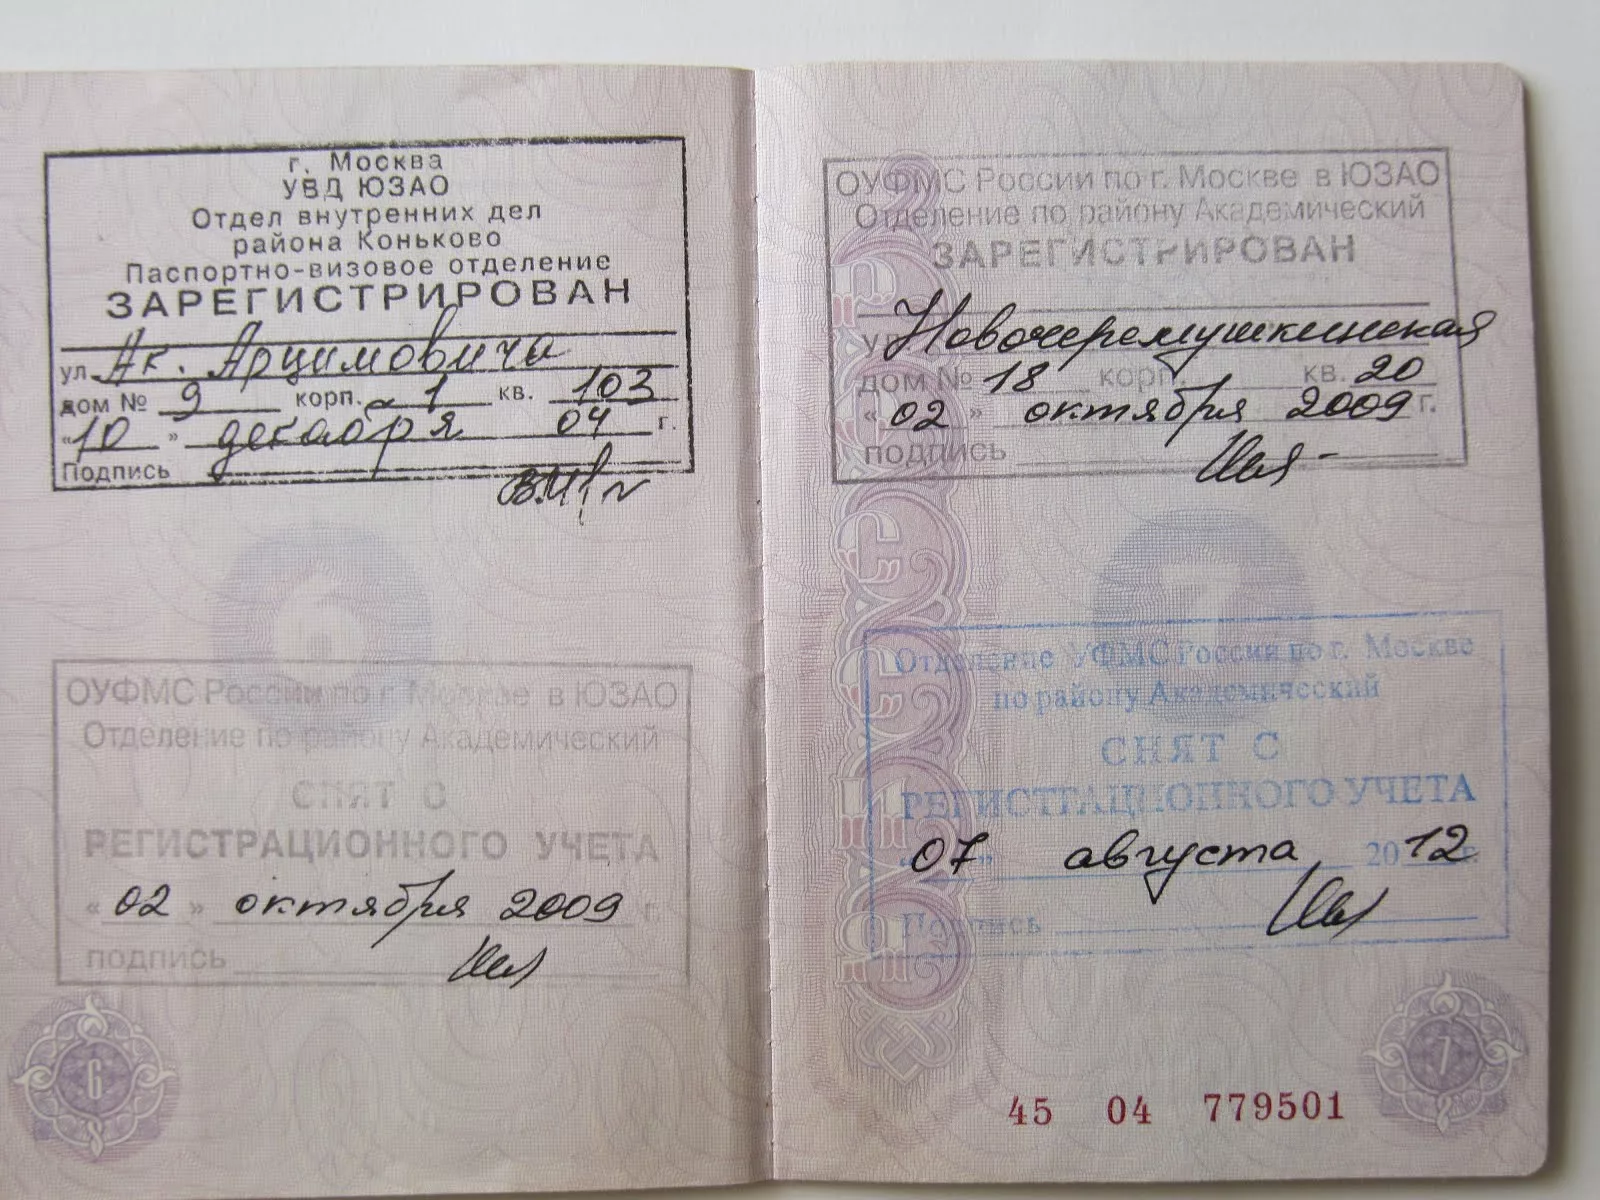 г. Москва
УВД ЮЗАО
Отдел внутренних дел
района Коньково
Паспортно-визовое отделение
ЗАРЕГИСТРИРОВАН
ул. Ак. Арцимовича
дом № 9 корп. 1 кв. 103
"10" декабря 04 г.
Подпись
ОУФМС России по г. Москве в ЮЗАО
Отделение по району Академический
СНЯТ С
РЕГИСТРАЦИОННОГО УЧЕТА
"02" октября 2009 г.
подпись
6
ОУФМС России по г. Москве в ЮЗАО
Отделение по району Академический
ЗАРЕГИСТРИРОВАН
ул. Новочеремушкинская
дом № 18 корп. кв. 20
"02" октября 2009 г.
подпись
Отделение УФМС России по г. Москве
по району Академический
СНЯТ С
РЕГИСТРАЦИОННОГО УЧЕТА
"07" августа 2012 г.
Подпись
7
45 04 779501